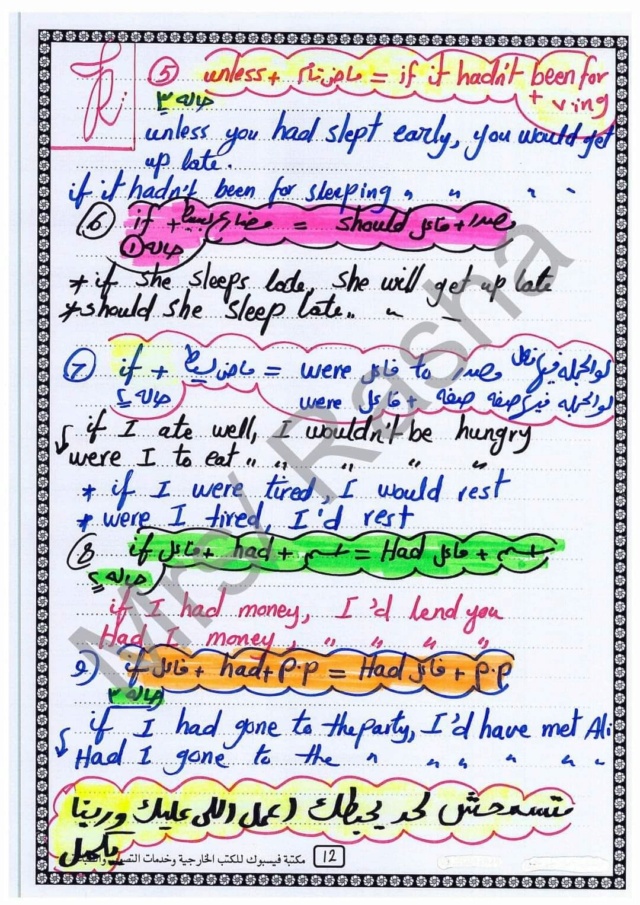 ⑤ unless + ماضى تام = if it hadn't been for + v ing
حاله ٣
unless you had slept early, you would get
up late.
if it hadn't been for sleeping " " " "
⑥ if + مضارع بسيط = should فاعل + مصدر
حاله ①
* if she sleeps late, she will get up late
* should she sleep late " " –
⑦ if + ماضى بسيط = were فاعل to مصدر لو الجمله فيها فعل
حاله ٢ were فاعل + صفه لو الجمله فيها صفه
if I ate well, I wouldn't be hungry
were I to eat " " " "
* if I were tired, I would rest
* were I tired, I'd rest
⑧ if فاعل + had + اسم = Had فاعل + اسم
حاله ٢
if I had money, I'd lend you
Had I money, " " " "
و) if فاعل + had + p.p = Had فاعل + p.p
حاله ٣
if I had gone to the party, I'd have met Ali
Had I gone to the " " " " "
متسمحش لحد يحبطك اعمل اللى عليك وربنا
يكمل
مكتبة فيسبوك للكتب الخارجية وخدمات 12
Mrs/ Rasha